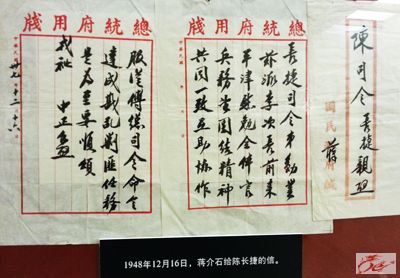 陳司令長捷親啟
國民政府
蔣緘
總統府用牋
長捷司令弟勛鑒
茲派李次長前來
平津慰勉全体官
兵務望團結精神
共同一致互助協作
總統府用牋
服從傅總司令命令
達成戡亂剿匪任務
是為至要順頌
戎祉 中正
卅七、十二、十六
1948年12月16日，蒋介石给陈长捷的信。